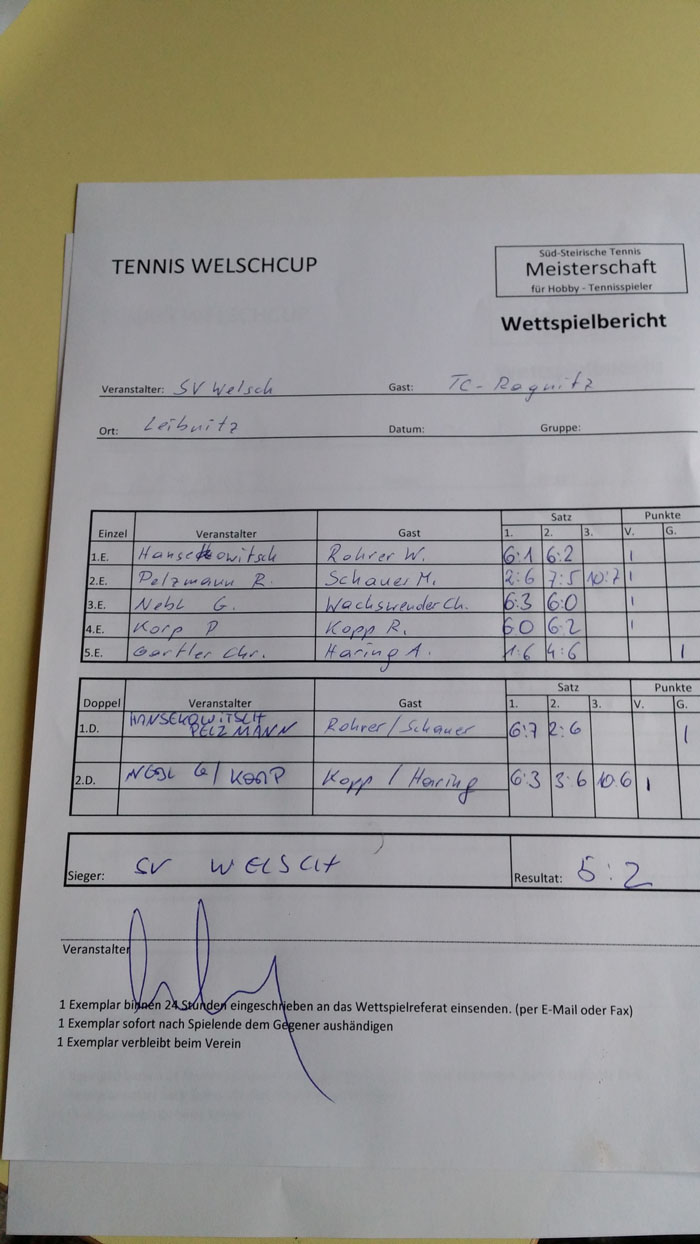 TENNIS WELSCHCUP
Süd-Steirische Tennis
Meisterschaft
für Hobby - Tennisspieler
Wettspielbericht
Veranstalter: SV Welsch Gast: TC-Ragnitz
Ort: Leibnitz Datum: Gruppe:
Satz Punkte
Einzel Veranstalter Gast 1. 2. 3. V. G.
1.E. Hansekowitsch Rohrer W. 6:1 6:2 1
2.E. Pelzmann R. Schauer M. 2:6 7:5 10:7 1
3.E. Nebl G. Wachswender Ch. 6:3 6:0 1
4.E. Korp P Kopp R. 6:0 6:2 1
5.E. Gartler Chr. Haring A. 1:6 4:6 1
Satz Punkte
Doppel Veranstalter Gast 1. 2. 3. V. G.
HANSEKOWITSCH
1.D. PELZMANN Rohrer/Schauer 6:7 2:6 1
2.D. NEBL G/KORP Kopp / Haring 6:3 3:6 10:6 1
Sieger: SV WELSCH Resultat: 5:2
Veranstalter
1 Exemplar binnen 24 Stunden eingeschrieben an das Wettspielreferat einsenden. (per E-Mail oder Fax)
1 Exemplar sofort nach Spielende dem Gegener aushändigen
1 Exemplar verbleibt beim Verein